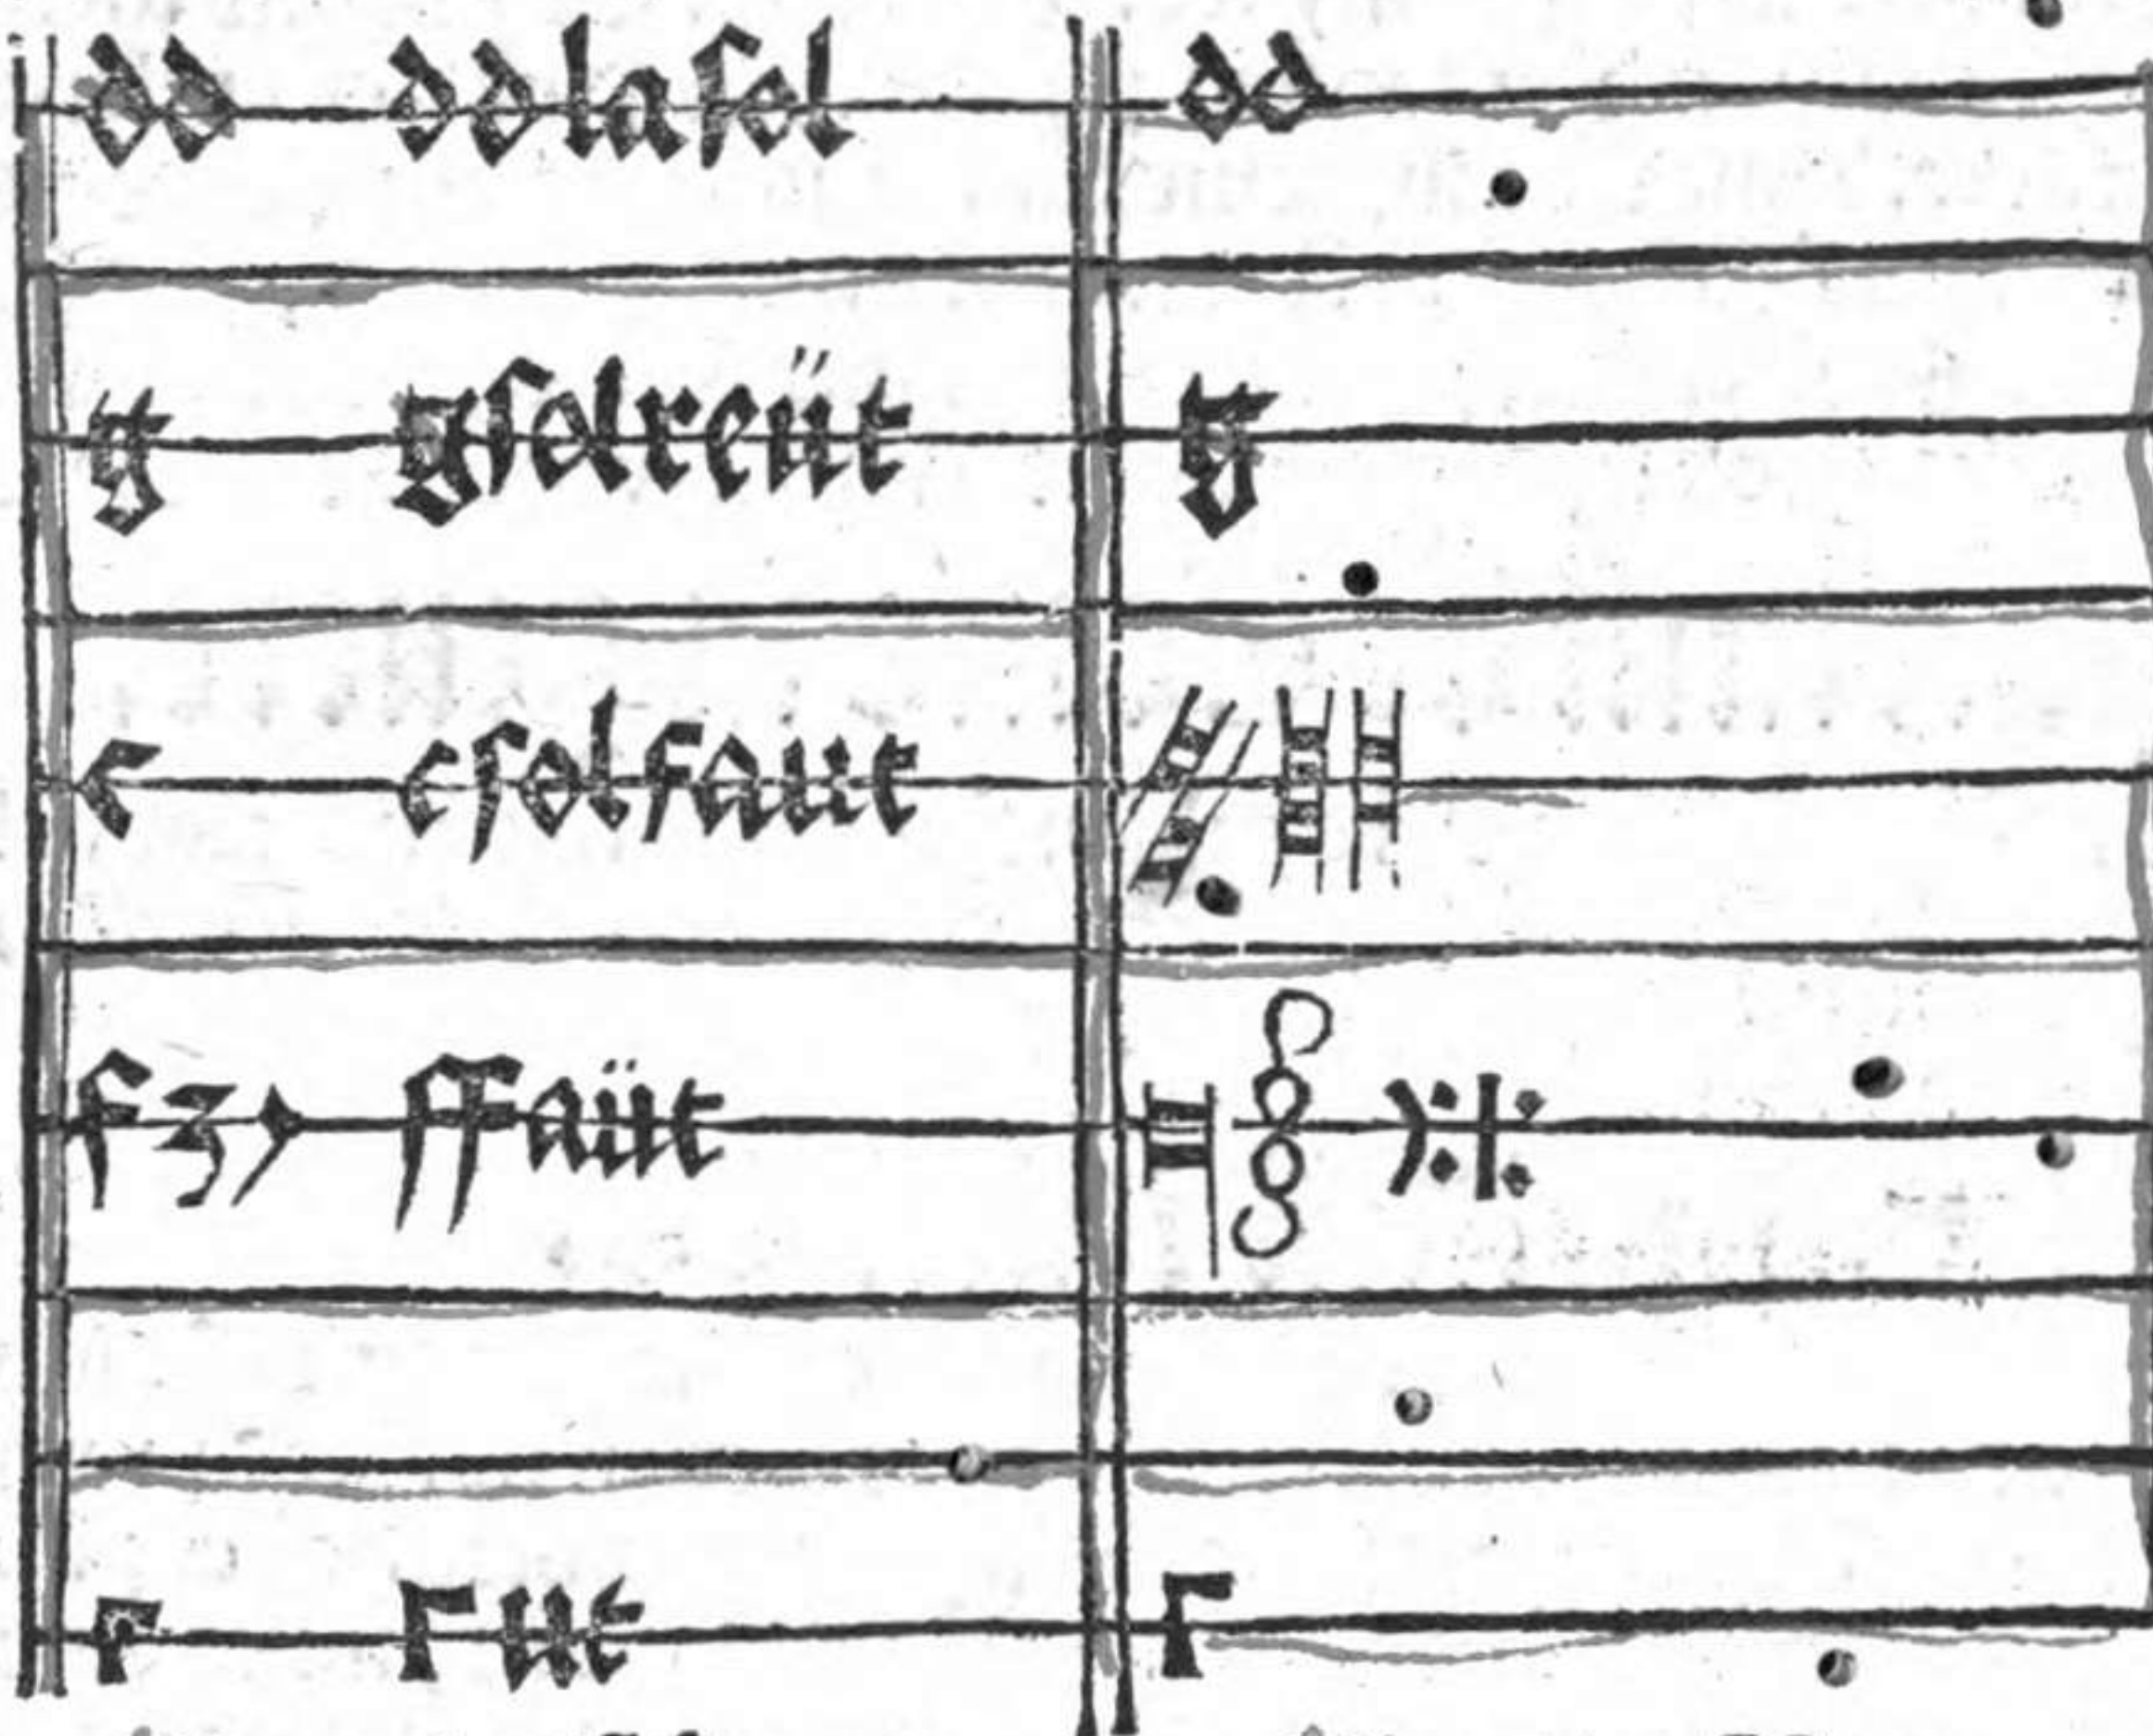 dd ddlasol dd
g gsolreüt g
c csolfaut
f ffaüt
Γ Γut Γ